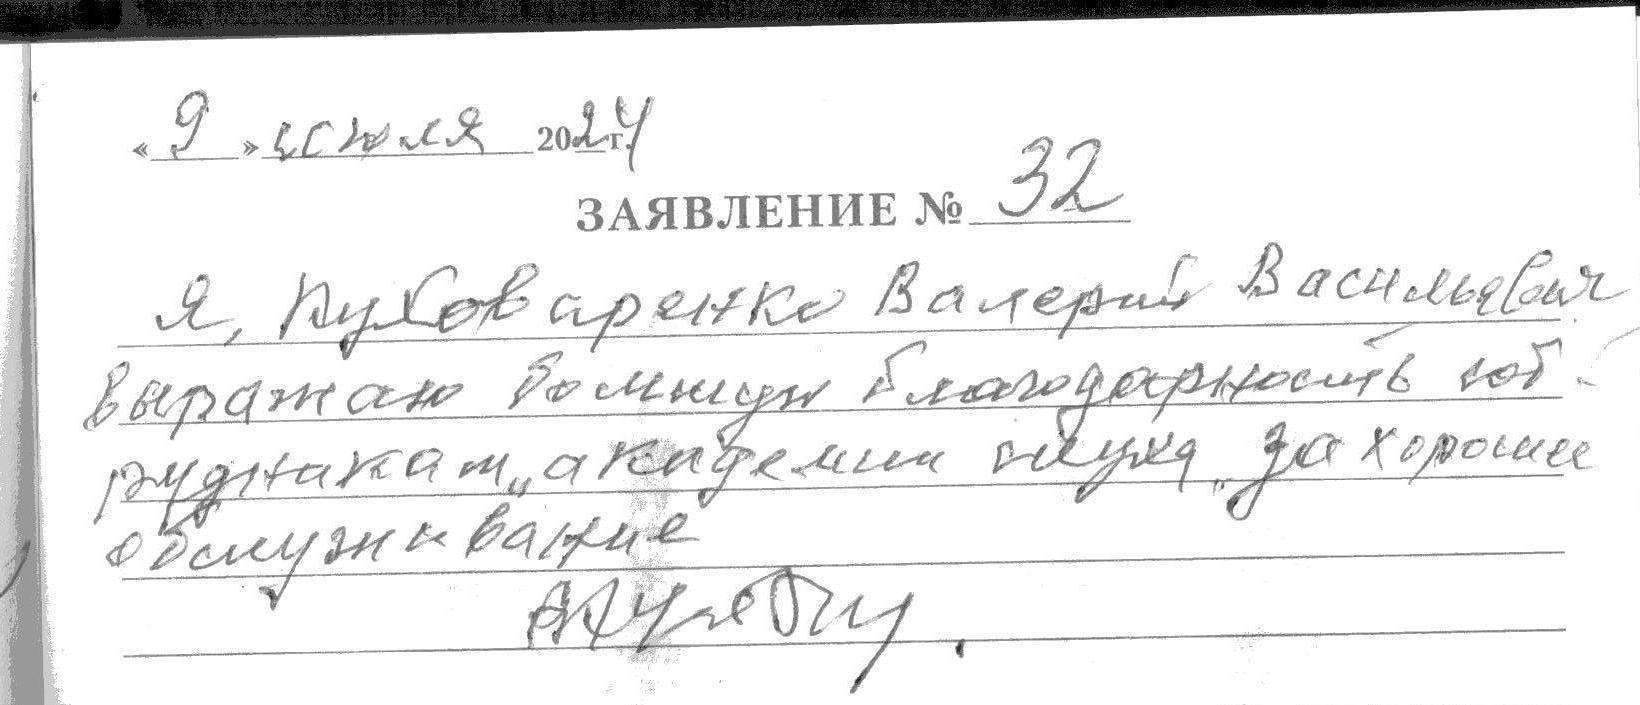 « 9 » июля 2024 г.
ЗАЯВЛЕНИЕ № 32
Я, Пуховаренко Валерий Васильевич
выражаю большую благодарность
"академии слуха" за хорошее
обслуживание